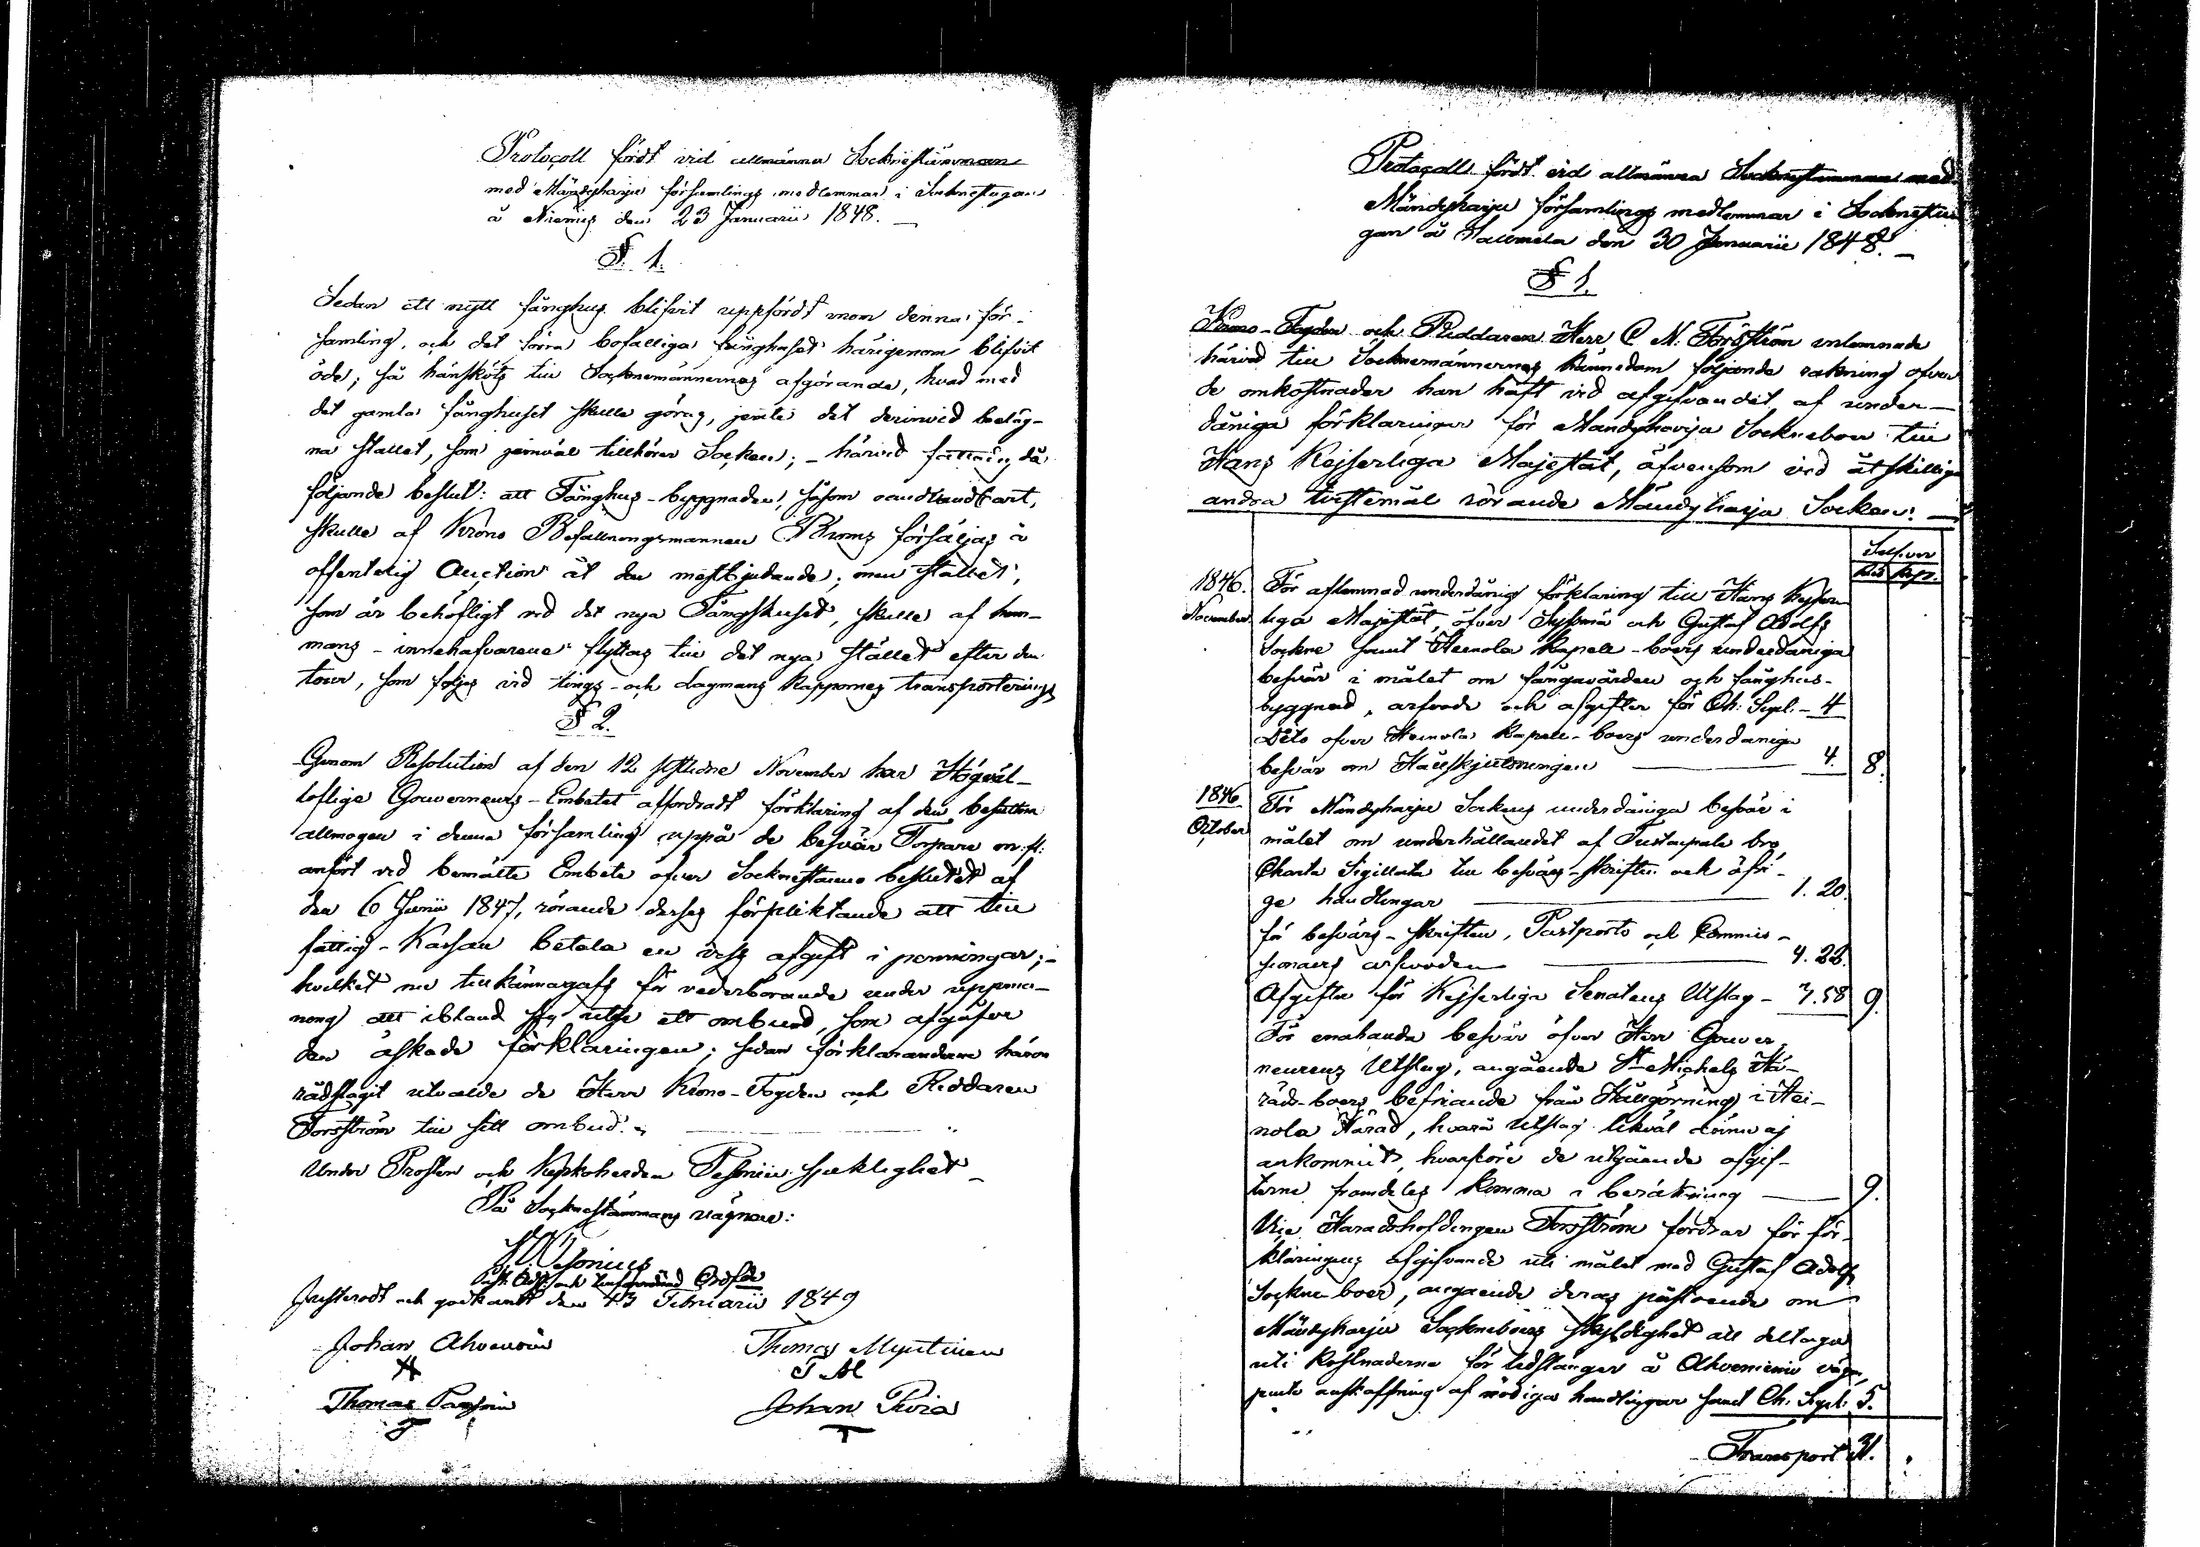 Protocoll fördt vid allmänna Socknestämman
med Mändyharju församlings medlemmar i Socknestugan
å Niemis den 23 Januarii 1848. —
§ 1.
Sedan ett nytt fånghus blifvit uppfördt inom denna för-
samling, och det förra bofälliga fånghuset härigenom blifvit
öde; så hänsköts till Socknemännernas afgörande, hvad med
det gamla fånghuset skulle göras, jemte det derinvid beläg-
na stallet, som jemväl tillhörer Socken; – härvid fattades då
följande beslut: att Fånghus-byggnaden, såsom oanvändbart,
skulle af Krono Befallningsmannen Broms försäljas å
offentelig Auction åt den mestbjudande; men stallet,
som är behöfligt vid det nya Fånghuset, skulle af hem-
mans-innehafvarene flyttas till det nya stället efter den
tour, som följes vid tings- och lagmans kappornes transportering
§ 2.
Genom Resolution af den 12 sistledne November har Högväl-
loflige Gouverneurs-Embetet affordradt förklaring af den besuttna
allmogen i denna församling uppå de besvär Torpare m. fl.
anfört vid bemälte Embete öfver Sockenstämmo beslutet af
den 6 Junii 1847, rörande derses förpliktande att till
fattig-Kassan betala en viss afgift i penningar; –
hvilket nu tillkännagafs för vederbörande under uppma-
ning att ibland sig utse ett ombud, som afgåfve
den äskade förklaringen; sedan förklaranderne härom
rådslagit utvalde de Herr Krono-Fogden och Riddaren
Forsström till sitt ombud. –
Under Prosten och Kyrkoherden Fesonii sjuklighet
På Sockenstämmans vägnar:
Ordför.
Justeradt och godkändt den 13 Februarii 1849
Johan Ahvenain Thomas Myntinen
Thomas
Johan
Protocoll fördt vid allmänna Sockenstämman med
Mändyharju församlings medlemmar i Socknestu
gan å Salmela den 30 Januarii 1848. —
§ 1.
Krono-Fogden och Riddaren Herr C N. Forsström inlemnade
härvid till Socknemännernas kännedom följande räkning öfver
de omkostnader han haft vid afgifvandet af under–
dåniga förklaringar för Mändyharju Socknebor till
Hans Kejserliga Majestät, äfvensom vid åtskillige
andra tvistemål rörande Mändyharju Socken: —
Silfver
Rub. Kop.
1846. För aflemnad underdånig förklaring till Hans Kejser
November. liga Majestät, öfver Sysmä och Gustaf Adolfs
Sockne samt Heinola Kapell-boers underdåniga
besvär i målet om fångavården och fånghus-
byggnad, arfvode och afgifter för Ch: Sigil. – 4
Dito öfver Heinola Kapell-boers underdåniga
besvär om Hållskjutsningen — 4. 8.
1846 För Mändyharju Sockens underdåniga besvär i
October målet om underhållandet af bro,
Charta Sigillata till besvärs-skriften och öfri-
ge handlingar — 1. 20.
för besvärs-skriften, Postporto och Commis-
sionaers arfvoden — 4. 22.
Afgifter för Kejserliga Senatens Utslag – 3.58 9.
För enahanda besvär öfver Herr Gouver-
neurens Utslag, angående St Michels Hä-
rads-boers befriande från Hållgörning i Hei-
nola Härad, hvarå Utslag likväl ännu ej
ankommit, hvarföre de utgående afgif-
terne framdeles komma i beräkning — 9.
Vice Häradshöfdingen Forsström fordrar för för-
klaringens afgifvande uti målet med Gustaf Adolfs
Sockneboer, angående deras påstående om
Mändyharju Socknebors skyldighet att deltaga
uti kostnaderna för ledstänger å Ahvenniemi väg,
jemte anskaffning af nödiga handlingar samt Ch. Sigil. 5.
Transport 31.